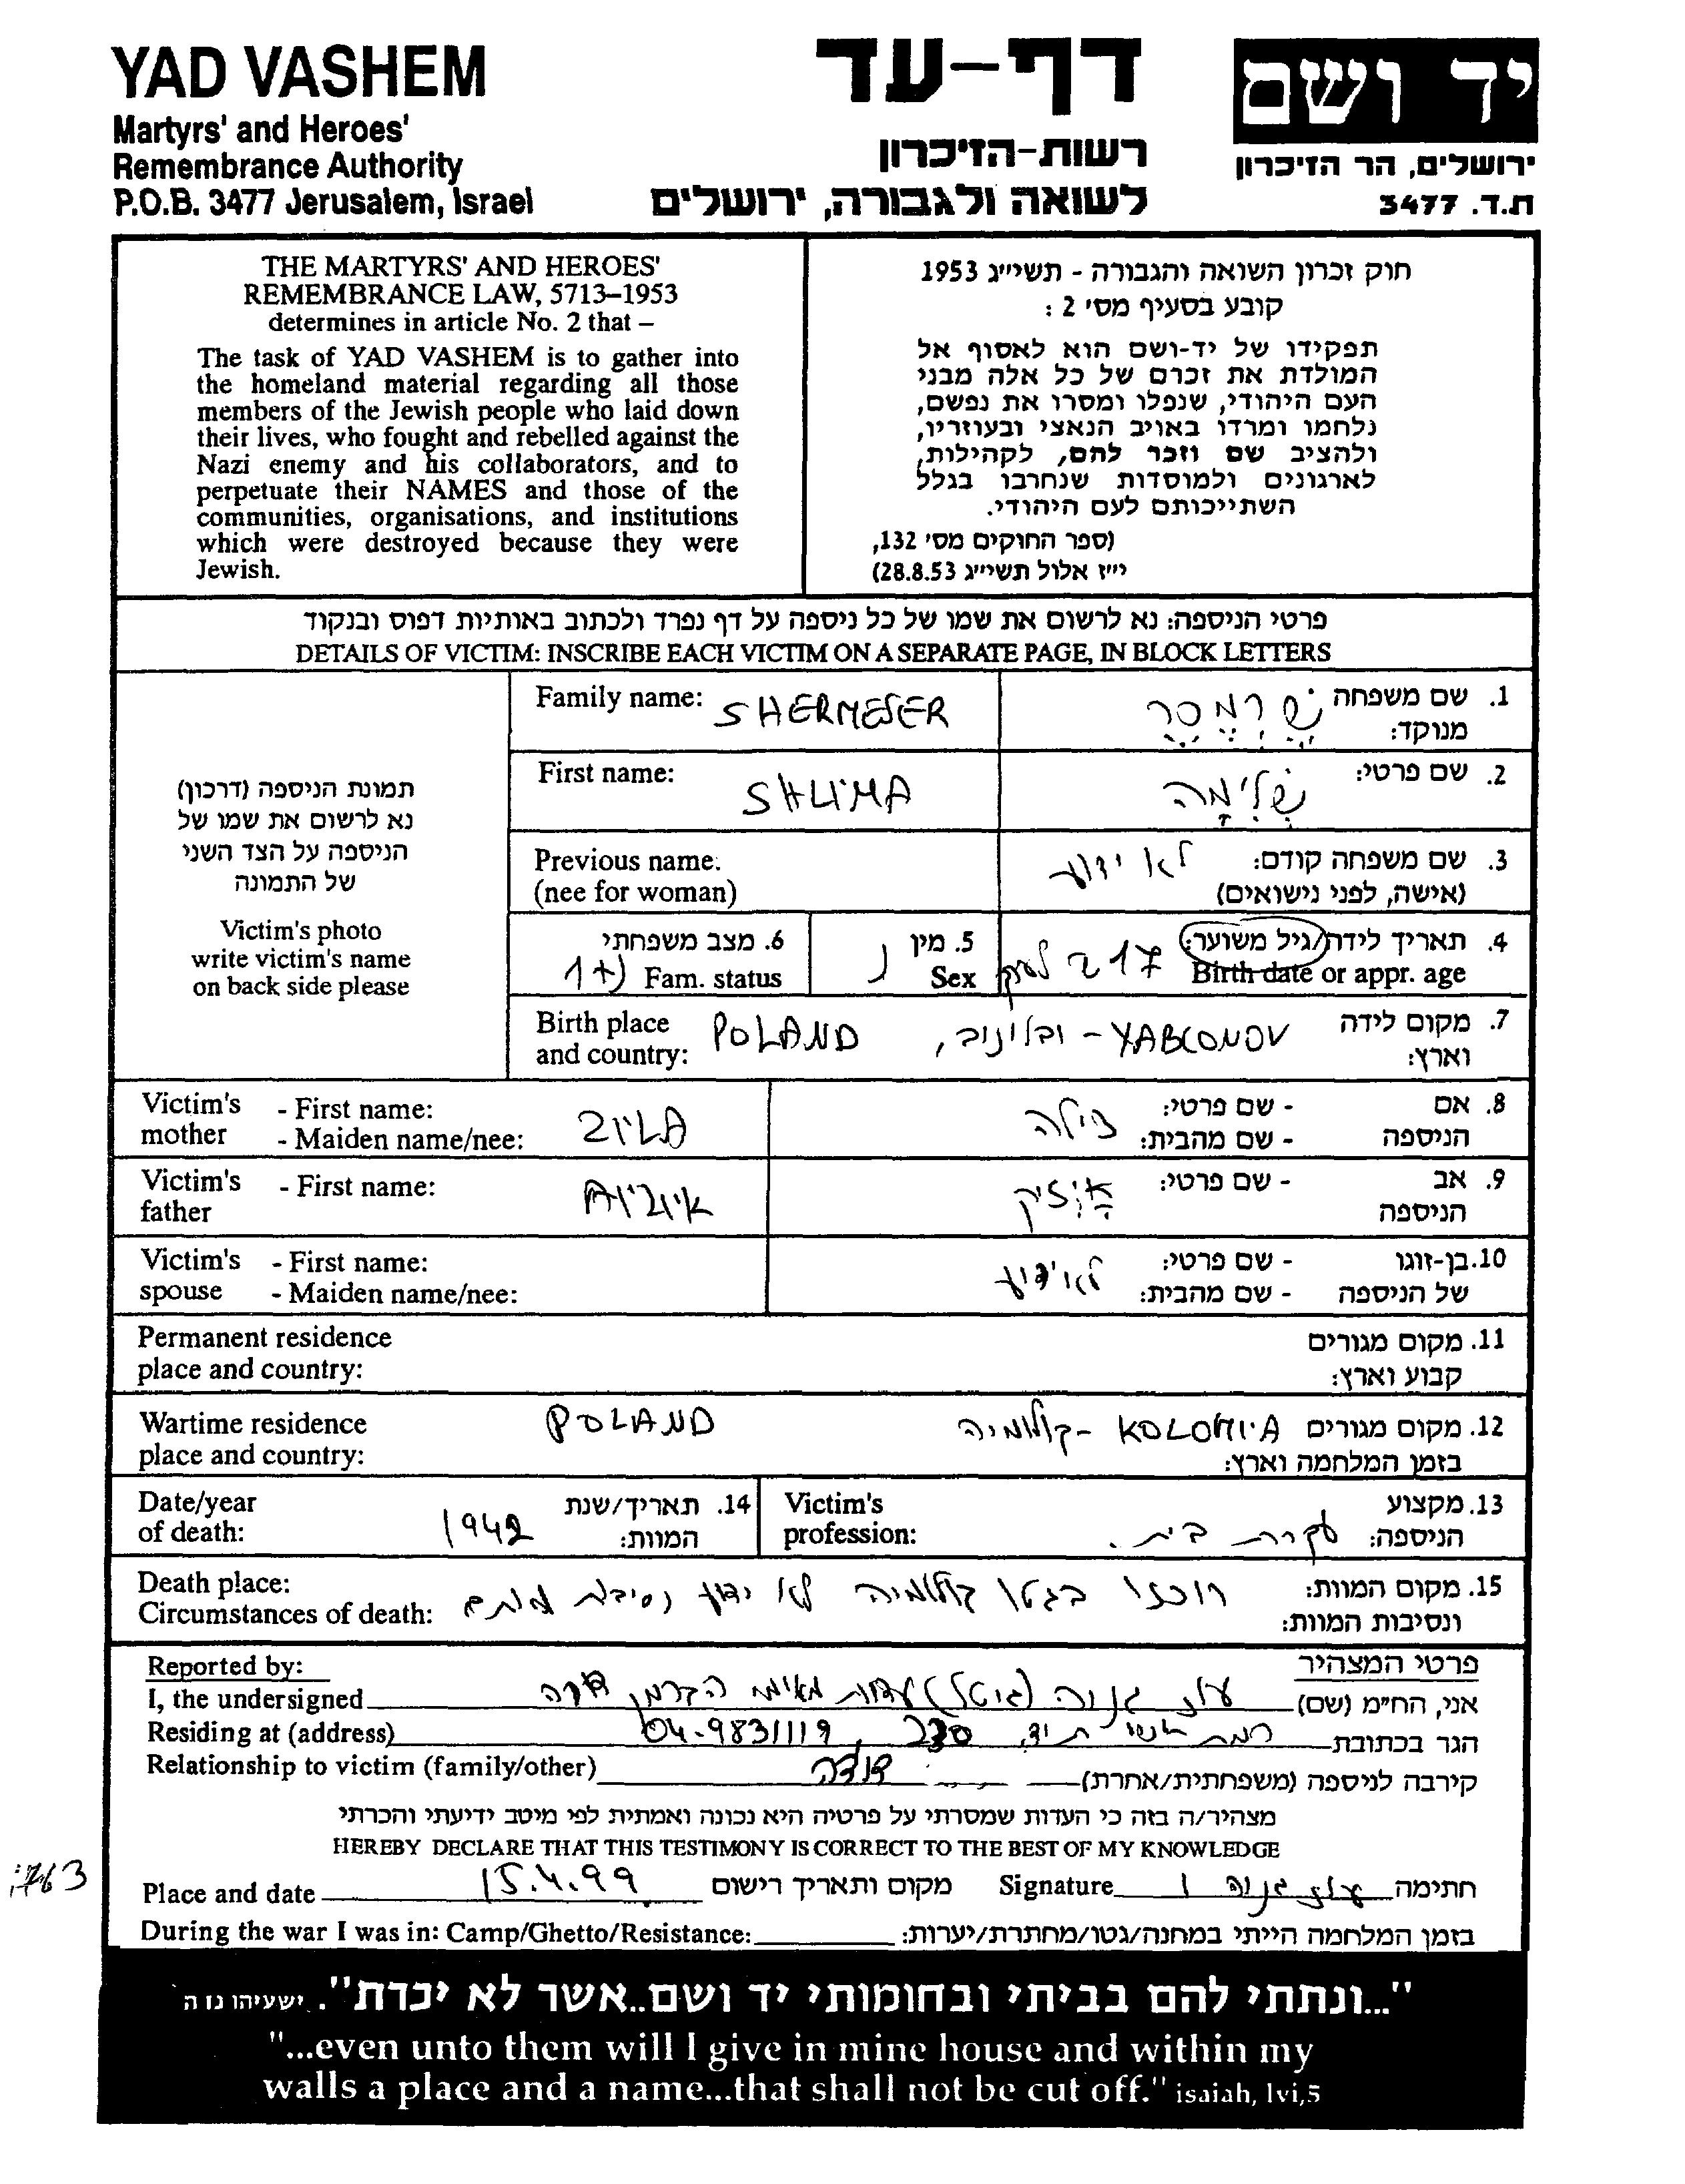 YAD VASHEM
Martyrs' and Heroes'
Remembrance Authority
P.O.B. 3477 Jerusalem, Israel
דף-עד
רשות-הזיכרון
לשואה ולגבורה, ירושלים
יד ושם
ירושלים, הר הזיכרון
ת.ד. 3477
THE MARTYRS' AND HEROES'
REMEMBRANCE LAW, 5713–1953
determines in article No. 2 that –
The task of YAD VASHEM is to gather into
the homeland material regarding all those
members of the Jewish people who laid down
their lives, who fought and rebelled against the
Nazi enemy and his collaborators, and to
perpetuate their NAMES and those of the
communities, organisations, and institutions
which were destroyed because they were
Jewish.
חוק זכרון השואה והגבורה - תשי״ג 1953
קובע בסעיף מס׳ 2 :
תפקידו של יד-ושם הוא לאסוף אל
המולדת את זכרם של כל אלה מבני
העם היהודי, שנפלו ומסרו את נפשם,
נלחמו ומרדו באויב הנאצי ובעוזריו,
ולהציב שם וזכר להם, לקהילות,
לארגונים ולמוסדות שנחרבו בגלל
השתייכותם לעם היהודי.
(ספר החוקים מס׳ 132,
י״ז אלול תשי״ג 28.8.53)
פרטי הניספה: נא לרשום את שמו של כל ניספה על דף נפרד ולכתוב באותיות דפוס ובנקוד
DETAILS OF VICTIM: INSCRIBE EACH VICTIM ON A SEPARATE PAGE, IN BLOCK LETTERS
תמונת הניספה (דרכון)
נא לרשום את שמו של
הניספה על הצד השני
של התמונה
Victim's photo
write victim's name
on back side please
Family name: SHERMESER שרמסר 1. שם משפחה
מנוקד:
First name: SHLIMA שלימה 2. שם פרטי:
Previous name: לא ידוע 3. שם משפחה קודם:
(nee for woman) (אישה, לפני נישואים)
6. מצב משפחתי 5. מין 4. תאריך לידה/גיל משוער:
Fam. status 1+ נ Sex 217 Birth date or appr. age
Birth place POLAND, YABLONOV - 7. מקום לידה
and country: וארץ:
Victim's - First name: ZILA צילה - שם פרטי: 8. אם
mother - Maiden name/nee: - שם מהבית: הניספה
Victim's - First name: AIZIK אייזיק - שם פרטי: 9. אב
father הניספה
Victim's - First name: לא ידוע - שם פרטי: 10. בן-זוגו
spouse - Maiden name/nee: - שם מהבית: של הניספה
Permanent residence 11. מקום מגורים
place and country: קבוע וארץ:
Wartime residence POLAND קולומיה - KOLOMIA 12. מקום מגורים
place and country: בזמן המלחמה וארץ:
Date/year 14. תאריך/שנת
of death: 1942 המוות:
Victim's 13. מקצוע
profession: עקרת בית. הניספה:
Death place: 15. מקום המוות:
Circumstances of death: רוכזו בגטו קולומיה לא ידוע נסיבת מותם ונסיבות המוות:
Reported by: פרטי המצהיר
I, the undersigned אני, הח״מ (שם)
Residing at (address) 04-9831119, 230 הגר בכתובת
Relationship to victim (family/other) דודה קירבה לניספה (משפחתית/אחרת)
מצהיר/ה בזה כי העדות שמסרתי על פרטיה היא נכונה ואמתית לפי מיטב ידיעתי והכרתי
HEREBY DECLARE THAT THIS TESTIMONY IS CORRECT TO THE BEST OF MY KNOWLEDGE
Place and date 15.4.99 מקום ותאריך רישום Signature חתימה
During the war I was in: Camp/Ghetto/Resistance: בזמן המלחמה הייתי במחנה/גטו/מחתרת/יערות:
"...ונתתי להם בביתי ובחומותי יד ושם..אשר לא יכרת". ישעיהו נו ה
"...even unto them will I give in mine house and within my
walls a place and a name...that shall not be cut off." isaiah, lvi,5